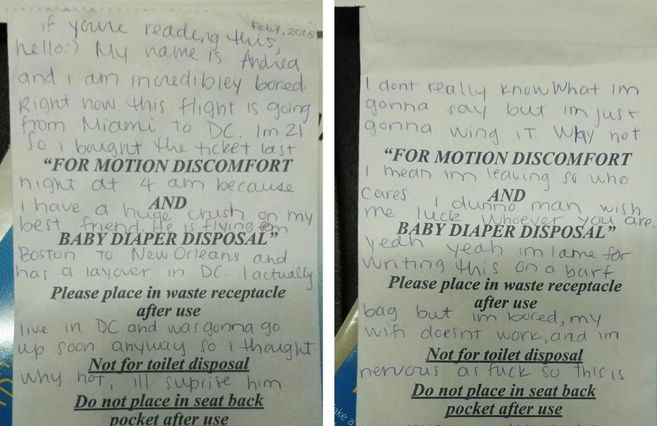 Feb 7, 2015
if youre reading this,
hello:) My name is Andrea
and i am incredibley bored
Right now this flight is going
from Miami to DC. Im 21
so i bought the ticket last
"FOR MOTION DISCOMFORT
night at 4 am because
AND
i have a huge crush on my
best friend. He is flying from
BABY DIAPER DISPOSAL"
Boston to New Orleans and
has a layover in DC. I actually
Please place in waste receptacle
after use
live in DC and was gonna go
up soon anyway so i thought
Not for toilet disposal
why not, ill suprise him
Do not place in seat back
pocket after use
I dont really know what im
gonna say but im just
gonna wing it. Why not
"FOR MOTION DISCOMFORT
I mean im leaving so who
cares. I dunno man wish
AND
me luck whoever you are.
BABY DIAPER DISPOSAL"
yeah yeah im lame for
writing this on a barf
Please place in waste receptacle
after use
bag but im bored, my
wifi doesnt work, and im
Not for toilet disposal
nervous as fuck so this is
Do not place in seat back
pocket after use